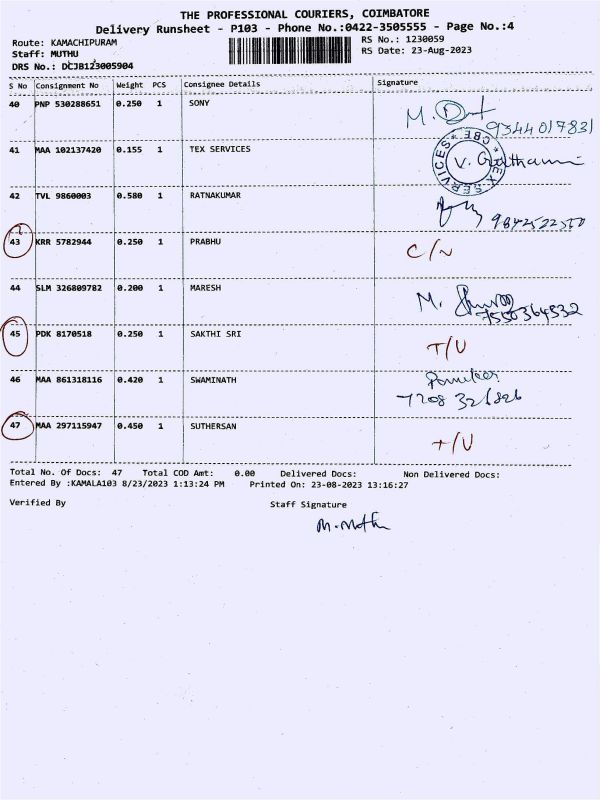 THE PROFESSIONAL COURIERS, COIMBATORE
Delivery Runsheet - P103 - Phone No.:0422-3505555 - Page No.:4
Route: KAMACHIPURAM RS No.: 1230059
Staff: MUTHU RS Date: 23-Aug-2023
DRS No.: DCJB123005904
S No Consignment No Weight PCS Consignee Details Signature
40 PNP 530288651 0.250 1 SONY M.
9344017831
41 MAA 102137420 0.155 1 TEX SERVICES V.
TEX SERVICES * CBE *
42 TVL 9860003 0.580 1 RATNAKUMAR
43 KRR 5782944 0.250 1 PRABHU C/N
44 SLM 326809782 0.200 1 MARESH M.
7550364532
45 PDK 8170518 0.250 1 SAKTHI SRI T/U
46 MAA 861318116 0.420 1 SWAMINATH
7208 326826
47 MAA 297115947 0.450 1 SUTHERSAN T/U
Total No. Of Docs: 47 Total COD Amt: 0.00 Delivered Docs: Non Delivered Docs:
Entered By :KAMALA103 8/23/2023 1:13:24 PM Printed On: 23-08-2023 13:16:27
Verified By Staff Signature
M. Muthu